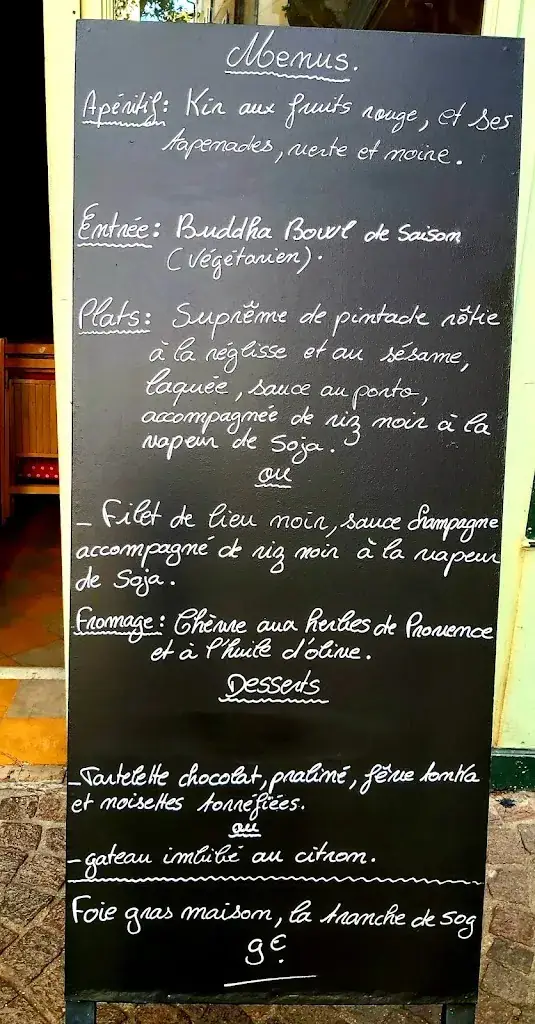 Menus.
Apéritif: Kir aux fruits rouge, et ses
tapenades, verte et noire.
Entrée: Buddha Bowl de Saison
(Végétarien).
Plats: Suprême de pintade rôtie
à la réglisse et au sésame,
laquée, sauce au porto,
accompagnée de riz noir à la
vapeur de Soja.
ou
- Filet de lieu noir, sauce champagne
accompagné de riz noir à la vapeur
de Soja.
Fromage: Chèvre aux herbes de Provence
et à l'huile d'olive.
Desserts
- Tartelette chocolat, praliné, fêve tonka
et noisettes torréfiées.
ou
- gateau imbibé au citron.
Foie gras maison, la tranche de 50g
9€